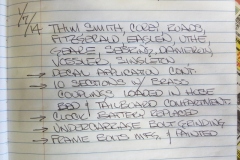 1/7/14
THIW SMITH, COREY, RHOADS,
FITZGERALD, EARLEY, UTHE,
GEARE, SEBRING, DAMERON,
VOSSNER, SINGLETON
→ DECAL APPLICATION CONT.
→ 10 SECTIONS W/ BRASS
COUPLINGS LOADED IN HOSE
BED & TAILBOARD COMPARTMENT.
→ CLOCK BATTERY REPLACED
→ UNDERCARRIAGE BOLT GRINDING
→ FRAME BOLTS MFG. & PAINTED